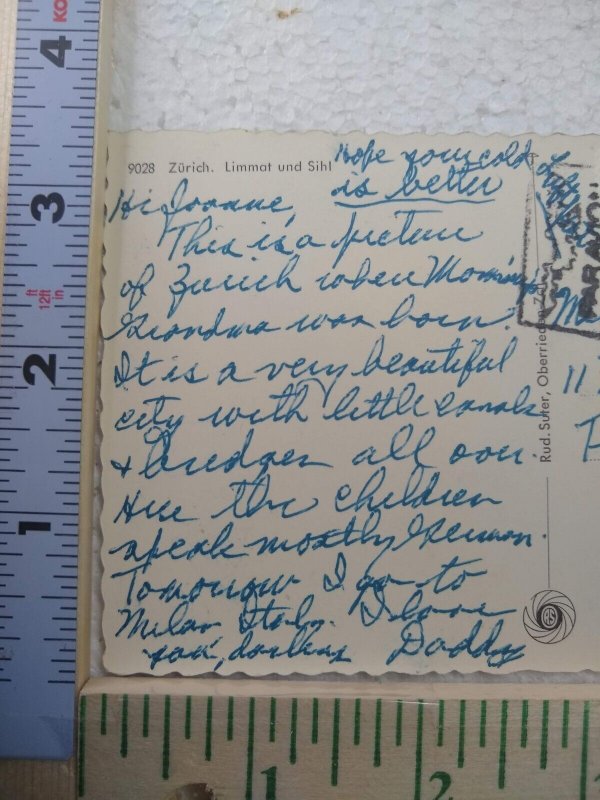 9028 Zürich. Limmat und Sihl
Hope your cold
is better
Hi Joanne,
This is a picture
of Zurich where Mommy's
Grandma was born.
It is a very beautiful
city with little canals
& bridges all over.
Here the children
speak mostly German.
Tomorrow I go to
Milan Italy. I love
you, darling Daddy
Rud. Suter, Oberrieden-Zürich
M
11
4
3
ft
12ft
in
2
1
1
2